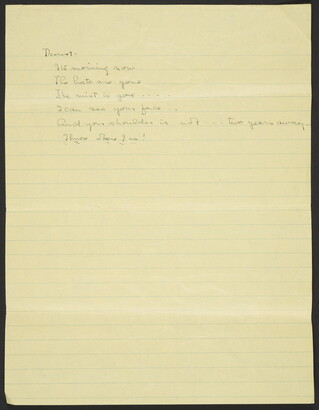 Dearest -
Its morning now
The hats are gone
The mist is gone . . . .
I can see your face . .
And your shoulder is not . . . two years away